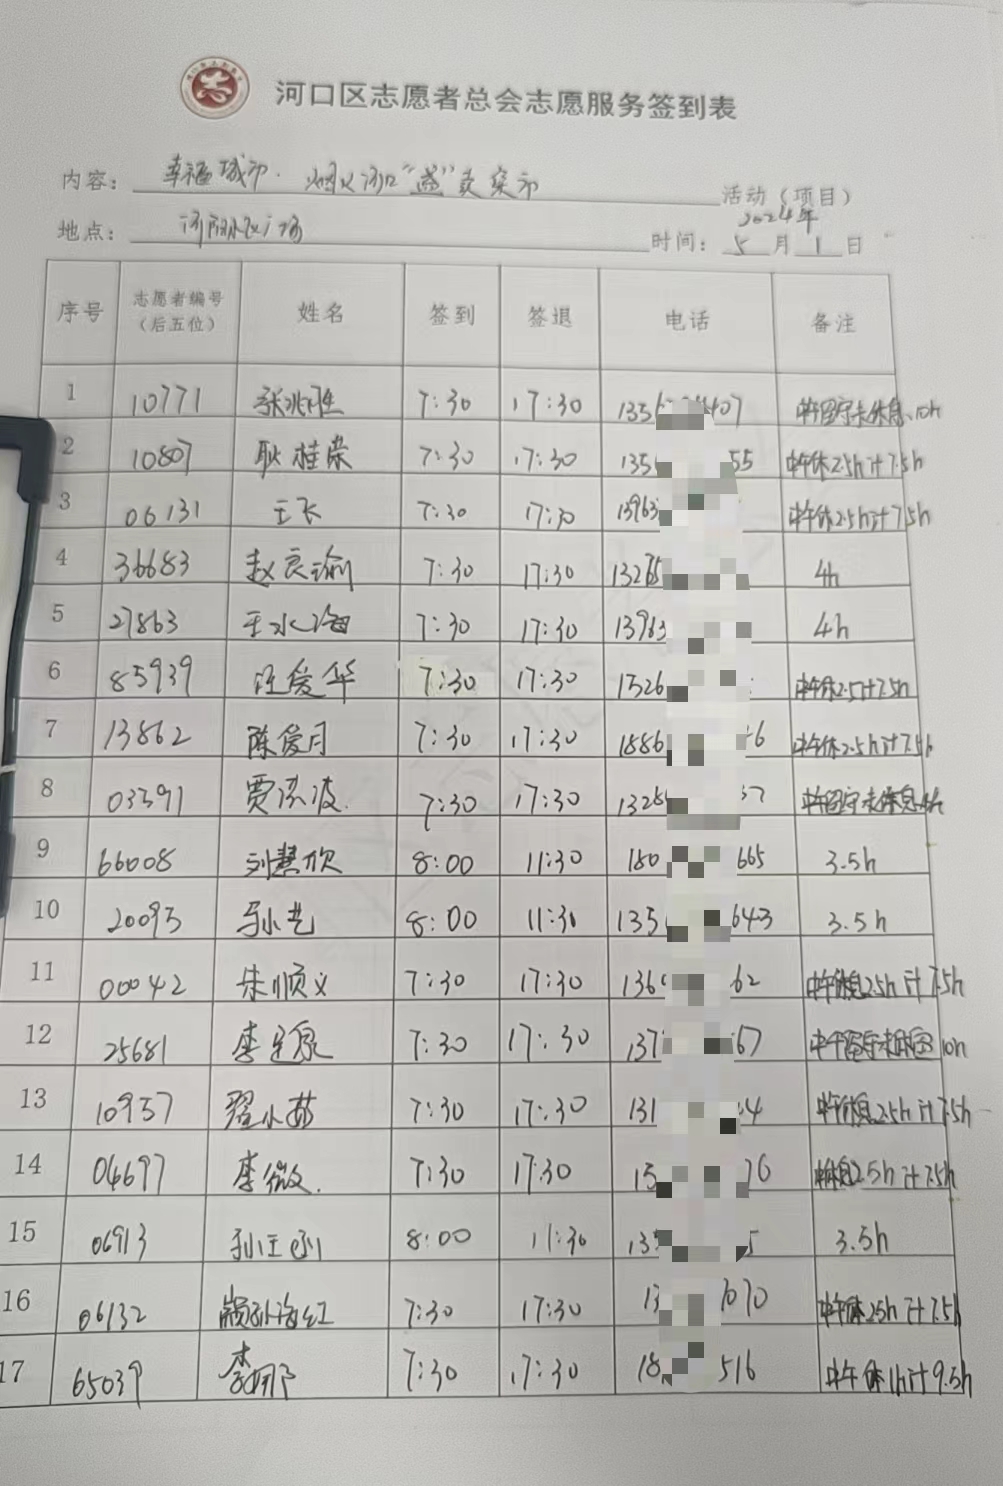 河口区志愿者总会志愿服务签到表
内容： 幸福城市·烟火河口"益"卖集市 活动（项目）
地点： 河阳区广场 时间： 2024年 5 月 1 日
序号 志愿者编号（后五位） 姓名 签到 签退 电话 备注
1 10771 张兆胜 7:30 17:30 135 07 中午留守未休息 10h
2 10807 耿桂荣 7:30 17:30 135 55 中午休2.5h计7.5h
3 06131 王飞 7:30 17:30 13963 中午休2.5h计7.5h
4 36683 赵良瑜 7:30 17:30 13265 4h
5 27863 王水海 7:30 17:30 13963 4h
6 85939 汪爱华 7:30 17:30 1526 中午休2.5计7.5h
7 13862 陈爱月 7:30 17:30 1886 6 中午休2.5h计7.5h
8 03391 贾洪波 7:30 17:30 1328 37 中午留守未休息
9 66008 刘慧欣 8:00 11:30 180 665 3.5h
10 20093 马小艺 8:00 11:30 135 643 3.5h
11 00042 朱顺义 7:30 17:30 136 62 中午休息2.5h计7.5h
12 25681 李 7:30 17:30 137 67 中午留守未 10h
13 10957 翟小茹 7:30 17:30 131 4 中午休息2.5h计7.5h
14 04697 李微 7:30 17:30 15 76 中午休息2.5h计7.5h
15 06913 孙 8:00 11:30 135 5 3.5h
16 06132 颛孙海红 7:30 17:30 13 1070 中午休2.5h计7.5h
17 65039 李娜 7:30 17:30 18 516 中午休1h计9.5h